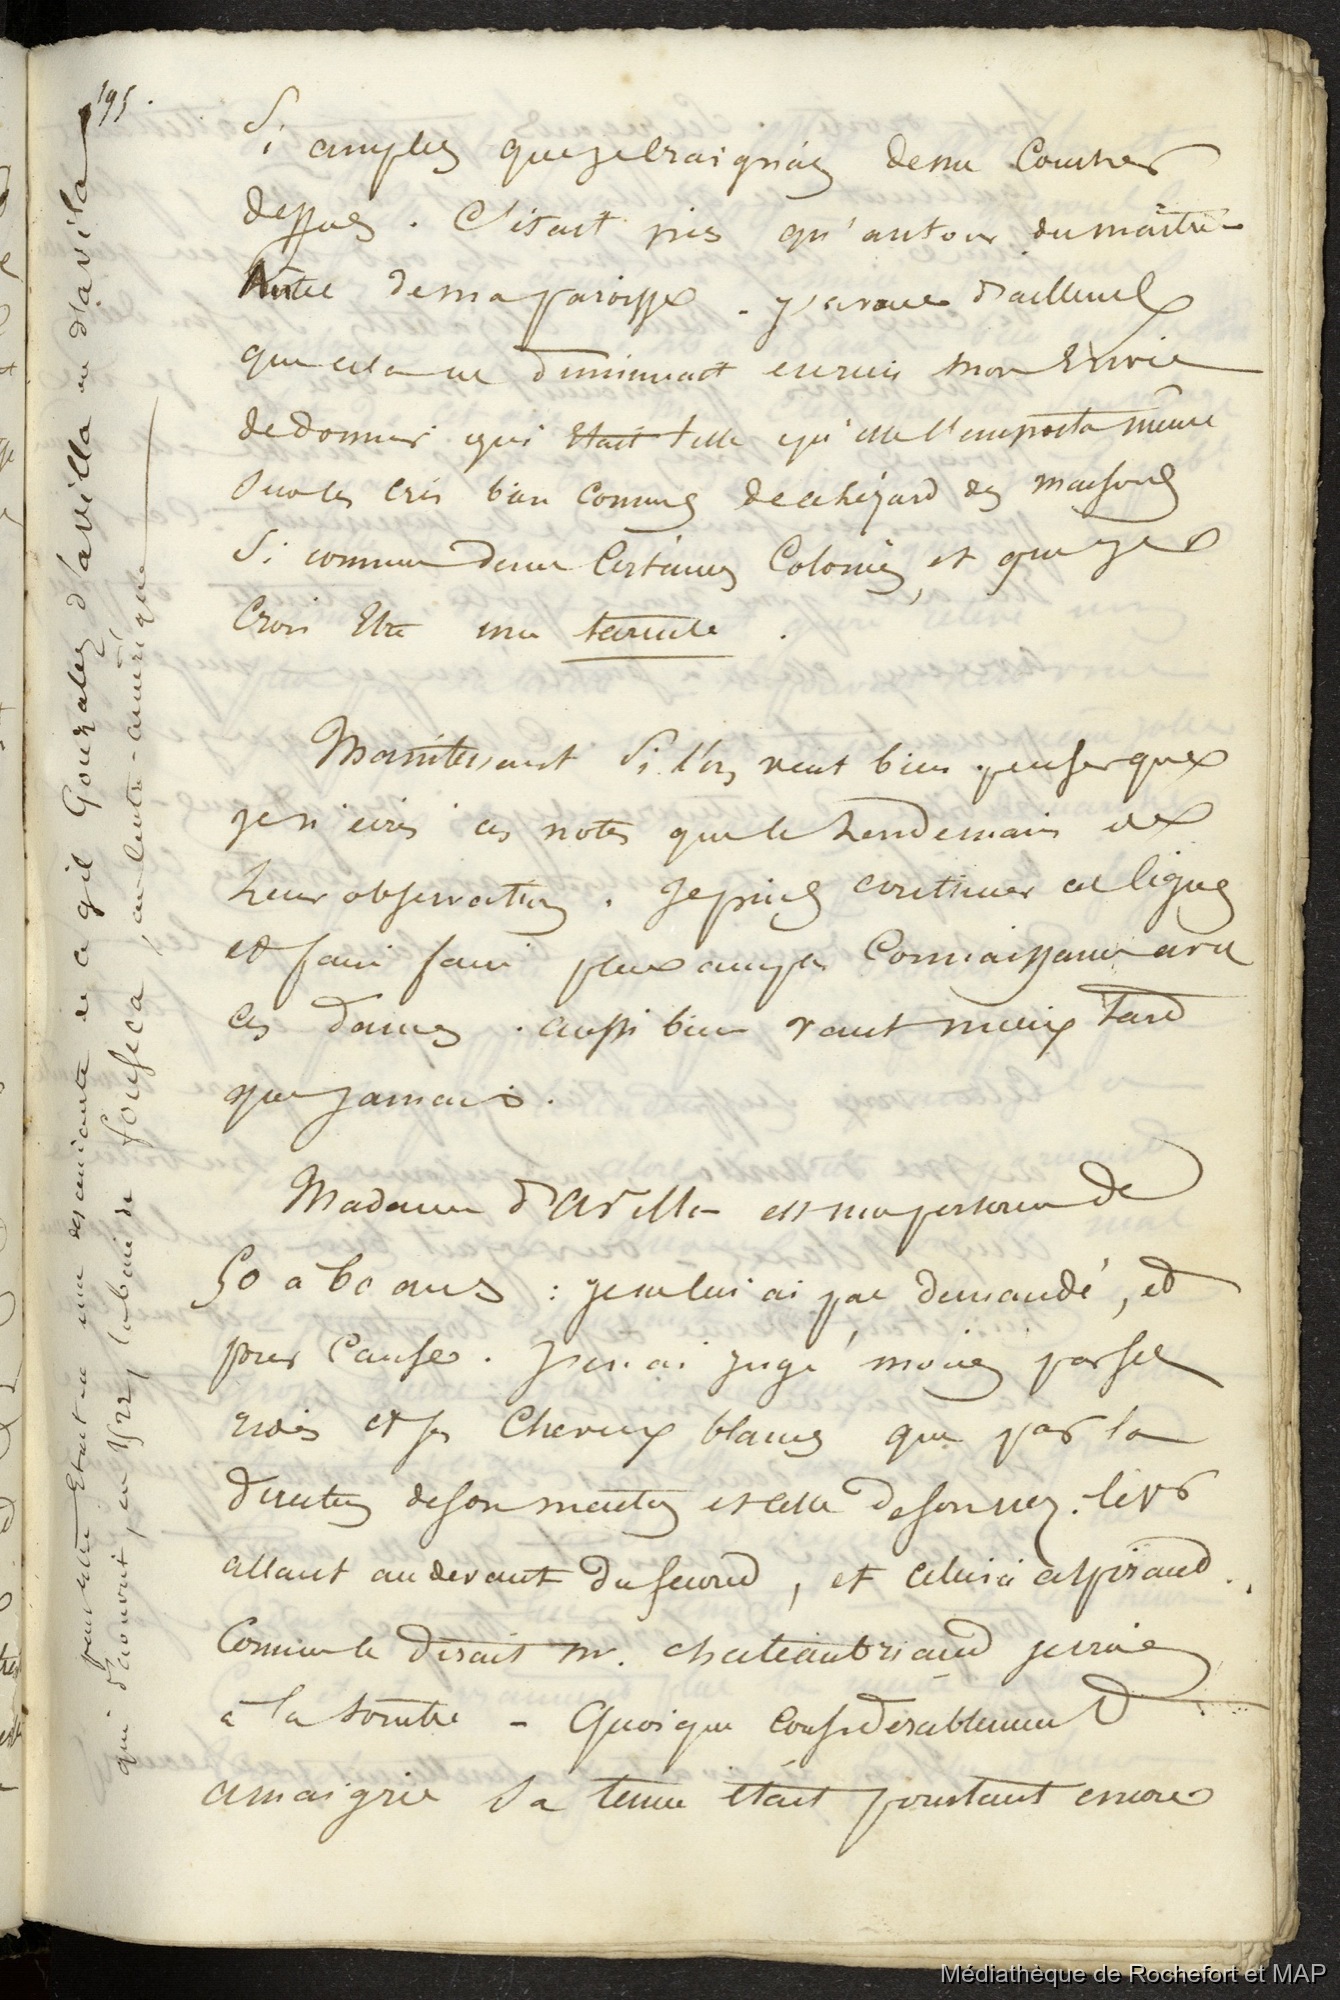 195.
Si amples que je craignais de me coucher
dessus. C'était pis qu'autour du maître
hôtel de ma paroisse. J'avoue d'ailleurs
que cela ne diminuait en rien mon envie
de dormir qui était telle qu'elle l'emporta même
sur les cris bien connus de ce lézard des maisons
si commun dans certaines colonies, et que je
crois être une tarente.
Maintenant si l'on veut bien penser que
je n'écris ces notes que le lendemain de
leur observation. Je puis continuer ces lignes
et faire faire plus ample connaissance avec
ces dames. aussi bien vaut mieux tard
que jamais.
Madame d'Avilla est une personne de
50 à 60 ans : je ne lui ai pas demandé, et
pour cause. J'en ai jugé moins par ses
rides et ses cheveux blancs que par la
direction de son menton et celle de son nez. le 1er
allant au devant du second, et celui ci aspirant.
Comme le disait Mr. Chateaubriand
à la tombe - Quoique considérablement
amaigrie sa tenue était pourtant encore
peut être était-ce une descendante de a gil Gonzales d'avilla ou d'avila
qui découvrit, en 1522, la baie de fonseca, au centre-amérique
Médiathèque de Rochefort et MAP